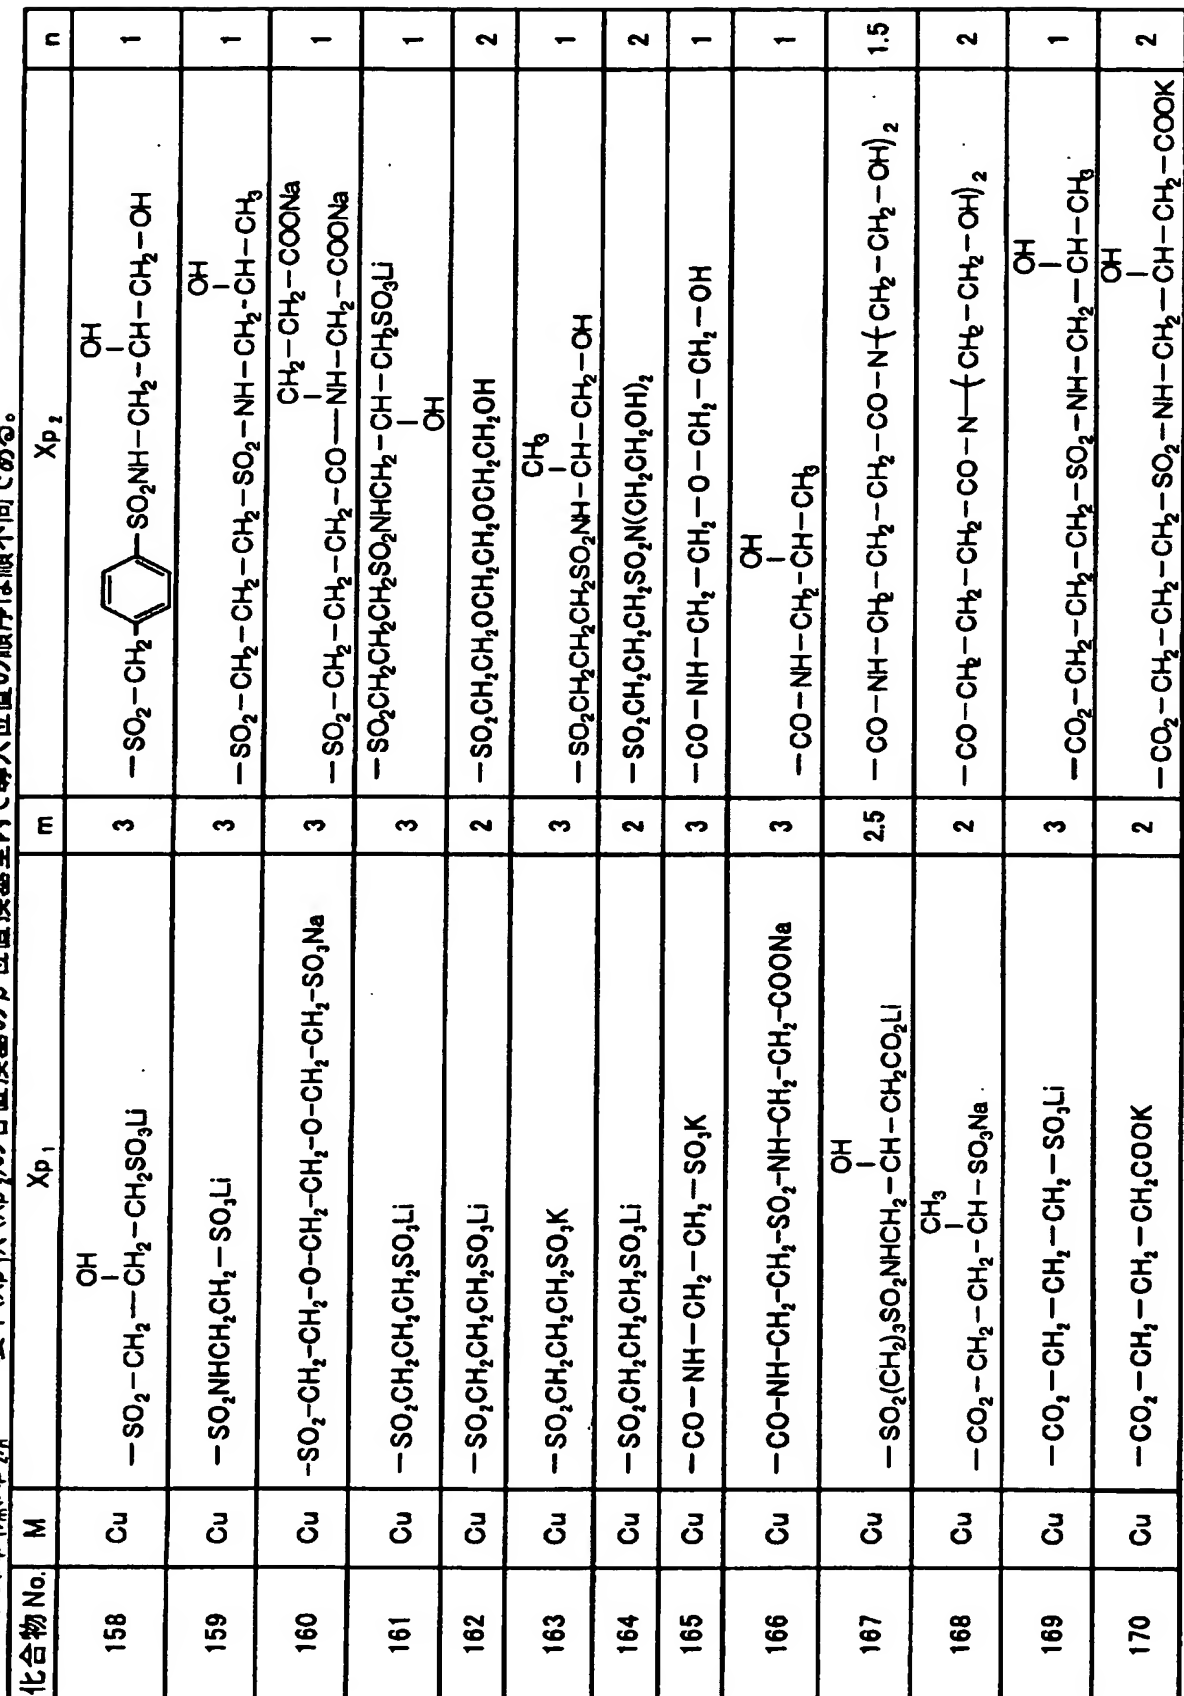 の各置換基のβ位置換基型内で導入位置の順序は順不同である。
化合物 No. M Xp₁ m Xp₂ n
OH OH
158 Cu —SO₂−CH₂—CH₂−CH₂SO₃Li 3 —SO₂−CH₂− −SO₂NH−CH₂−CH−CH₂−OH 1
OH
159 Cu —SO₂NHCH₂CH₂—SO₃Li 3 —SO₂−CH₂−CH₂−CH₂−SO₂−NH−CH₂-CH−CH₃ 1
CH₂−CH₂−COONa
160 Cu -SO₂-CH₂-CH₂-O-CH₂-CH₂-O-CH₂-CH₂-SO₃Na 3 —SO₂−CH₂−CH₂−CH₂−CO—NH−CH₂−COONa 1
161 Cu —SO₂CH₂CH₂CH₂SO₃Li 3 —SO₂CH₂CH₂CH₂SO₂NHCH₂−CH−CH₂SO₃Li 1
OH
162 Cu —SO₂CH₂CH₂CH₂SO₃Li 2 —SO₂CH₂CH₂OCH₂CH₂OCH₂CH₂OH 2
CH₃
163 Cu —SO₂CH₂CH₂CH₂SO₃K 3 —SO₂CH₂CH₂CH₂SO₂NH−CH−CH₂−OH 1
164 Cu —SO₂CH₂CH₂CH₂SO₃Li 2 —SO₂CH₂CH₂CH₂SO₂N(CH₂CH₂OH)₂ 2
165 Cu —CO−NH−CH₂−CH₂—SO₃K 3 —CO−NH−CH₂−CH₂−O−CH₂−CH₂−OH 1
OH
166 Cu —CO-NH-CH₂-CH₂-SO₂-NH-CH₂-CH₂-COONa 3 —CO−NH−CH₂−CH−CH₃ 1
OH
167 Cu —SO₂(CH₂)₃SO₂NHCH₂−CH−CH₂CO₂Li 2.5 —CO−NH−CH₂−CH₂−CH₂−CO−N(CH₂−CH₂−OH)₂ 1.5
CH₃
168 Cu —CO₂−CH₂−CH₂−CH−SO₃Na 2 —CO−CH₂−CH₂−CH₂−CO−N—(CH₂−CH₂−OH)₂ 2
OH
169 Cu —CO₂−CH₂−CH₂−CH₂−SO₃Li 3 —CO₂−CH₂−CH₂−CH₂−SO₂−NH−CH₂−CH−CH₃ 1
OH
170 Cu —CO₂−CH₂−CH₂−CH₂COOK 2 —CO₂−CH₂−CH₂−CH₂−SO₂−NH−CH₂−CH−CH₂−COOK 2